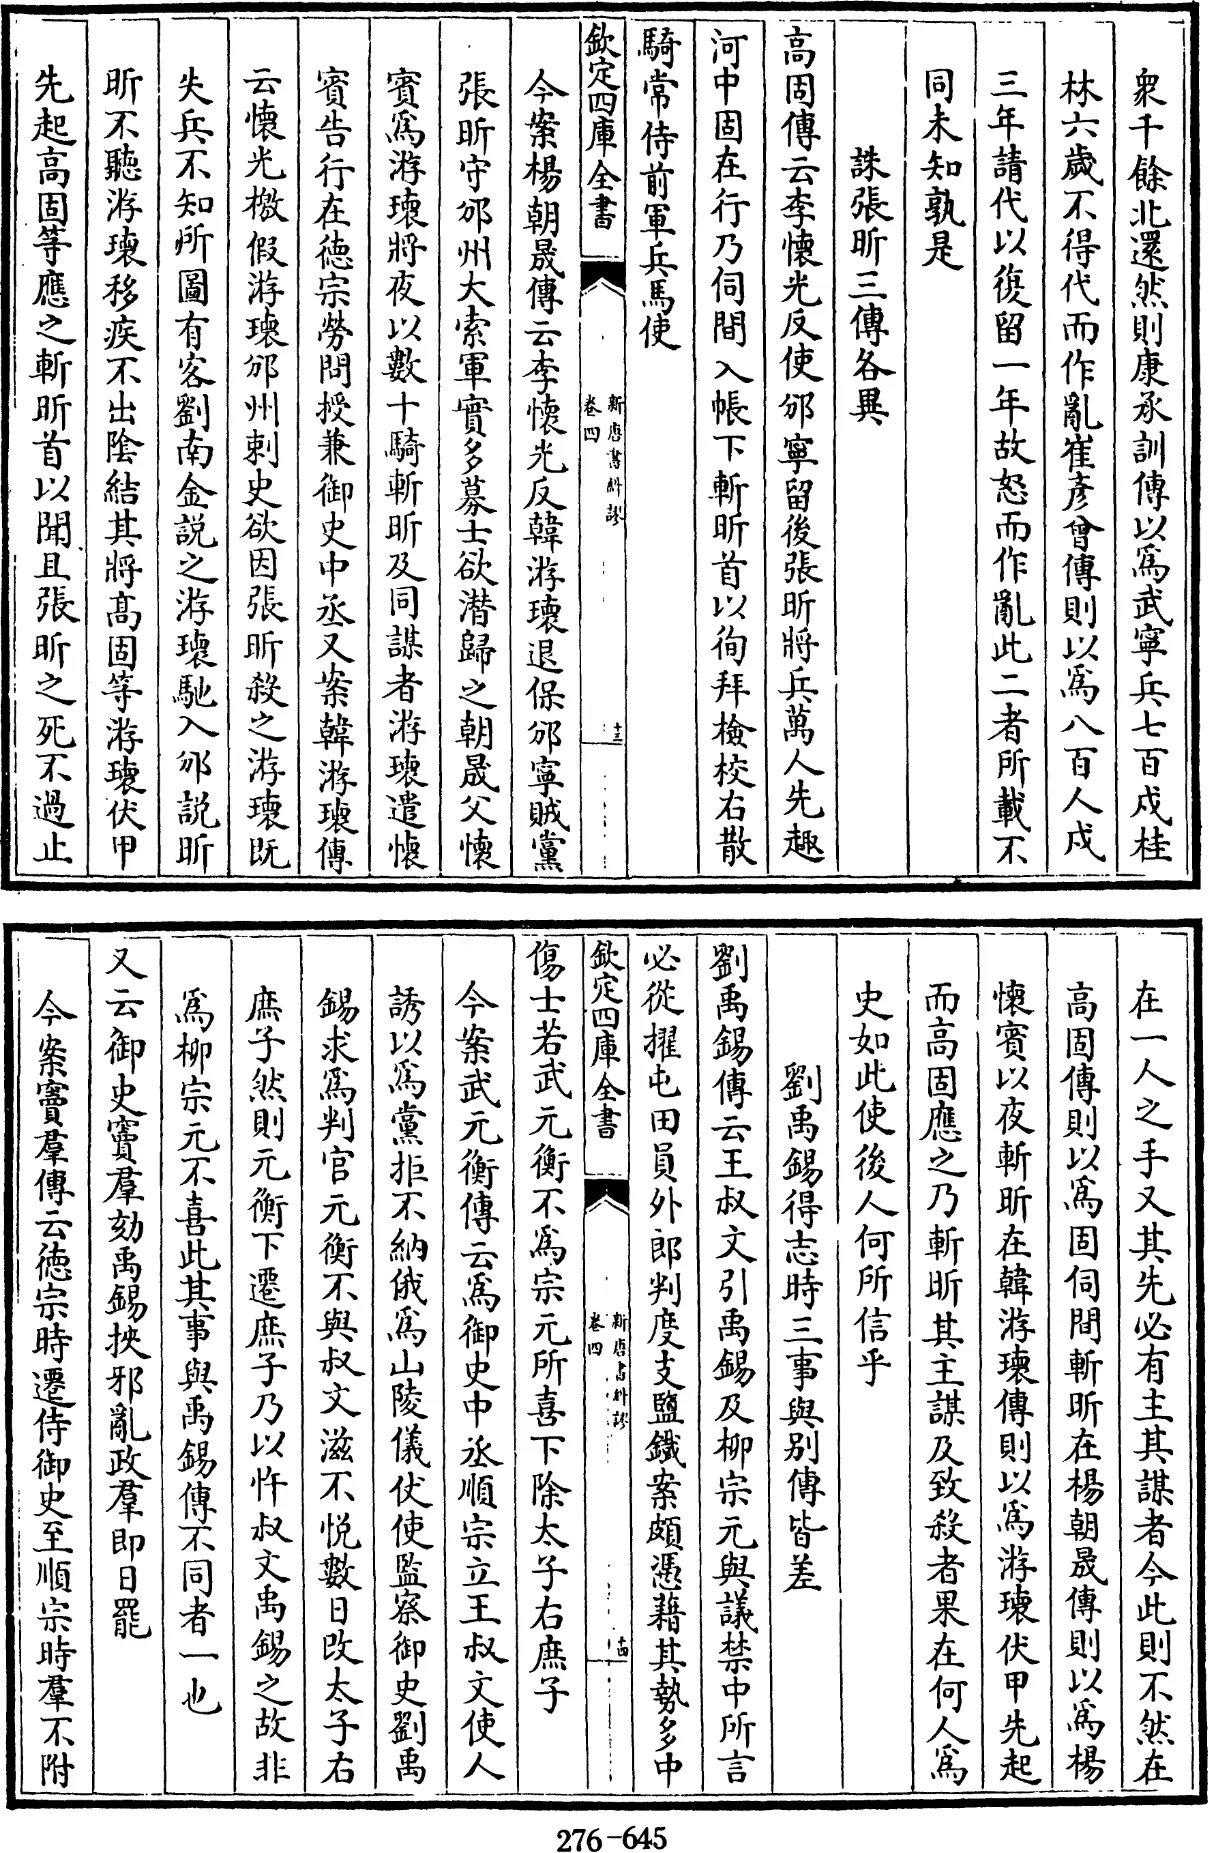 衆千餘北還然則康承訓傳以爲武寧兵七百戍桂
林六歲不得代而作亂崔彥曾傳則以爲八百人戍
三年請代以復留一年故怒而作亂此二者所載不
同未知孰是
誅張昕三傳各異
高固傳云李懷光反使邠寧留後張昕將兵萬人先趣
河中固在行乃伺間入帳下斬昕首以徇拜檢校右散
騎常侍前軍兵馬使
欽定四庫全書
新唐書糾謬
卷四
十三
今案楊朝晟傳云李懷光反韓游瓌退保邠寧賊黨
張昕守邠州大索軍實多募士欲潜歸之朝晟父懷
賓爲游瓌將夜以數十騎斬昕及同謀者游瓌遣懷
賓告行在德宗勞問授兼御史中丞又案韓游瓌傳
云懷光檄假游瓌邠州刺史欲因張昕殺之游瓌既
失兵不知所圖有客劉南金説之游瓌馳入邠説昕
昕不聽游瓌移疾不出陰結其將高固等游瓌伏甲
先起高固等應之斬昕首以聞且張昕之死不過止
在一人之手又其先必有主其謀者今此則不然在
高固傳則以爲固伺間斬昕在楊朝晟傳則以爲楊
懷賓以夜斬昕在韓游瓌傳則以爲游瓌伏甲先起
而高固應之乃斬昕其主謀及致殺者果在何人爲
史如此使後人何所信乎
劉禹錫得志時三事與别傳皆差
劉禹錫傳云王叔文引禹錫及柳宗元與議禁中所言
必從擢屯田員外郎判度支鹽鐵案頗憑藉其勢多中
傷士若武元衡不爲宗元所喜下除太子右庶子
欽定四庫全書
新唐書糾謬
卷四
十四
今案武元衡傳云爲御史中丞順宗立王叔文使人
誘以爲黨拒不納俄爲山陵儀仗使監察御史劉禹
錫求爲判官元衡不與叔文滋不悅數日改太子右
庶子然則元衡下遷庶子乃以忤叔文禹錫之故非
爲柳宗元不喜此其事與禹錫傳不同者一也
又云御史竇羣劾禹錫挾邪亂政羣即日罷
今案竇羣傳云德宗時遷侍御史至順宗時羣不附
276-645